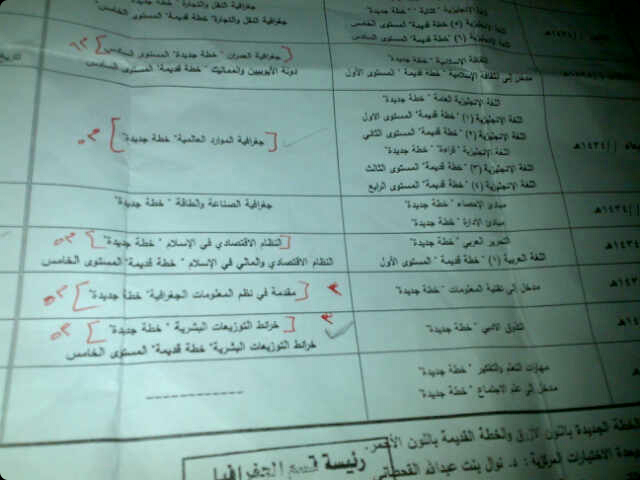 جغرافية النقل والتجارة " خطة جديدة"
جغرافية النقل والتجارة " خطة قديمة" المستوى الخامس
اللغة الإنجليزية (٥) " خطة قديمة" المستوى الخامس
اللغة الإنجليزية (٦) " خطة قديمة" المستوى السادس
الثقافة الإسلامية " خطة جديدة"
مدخل إلى الثقافة الإسلامية " خطة قديمة" المستوى الأول
جغرافية العمران " خطة جديدة" المستوى السادس
دولة الأيوبيين والمماليك " خطة قديمة" المستوى السادس
١٤٣٤هـ
اللغة الإنجليزية العامة " خطة جديدة"
اللغة الإنجليزية (١) " خطة قديمة" المستوى الأول
اللغة الإنجليزية (٢) " خطة قديمة" المستوى الثاني
اللغة الإنجليزية " قراءة" " خطة جديدة"
اللغة الإنجليزية (٣) " خطة قديمة" المستوى الثالث
اللغة الإنجليزية (٤) " خطة قديمة" المستوى الرابع
جغرافية الموارد العالمية" خطة جديدة"
١٤٣٤هـ
مبادئ الإحصاء " خطة جديدة"
مبادئ الإدارة " خطة جديدة"
جغرافية الصناعة والطاقة " خطة جديدة"
التحرير العربي " خطة جديدة"
اللغة العربية (١) " خطة قديمة" المستوى الأول
النظام الاقتصادي في الإسلام " خطة جديدة"
النظام الاقتصادي والمالي في الإسلام " خطة قديمة" المستوى الخامس
مدخل إلى تقنية المعلومات " خطة جديدة"
مقدمة في نظم المعلومات الجغرافية" خطة جديدة"
التذوق الأدبي " خطة جديدة"
خرائط التوزيعات البشرية " خطة جديدة"
خرائط التوزيعات البشرية" خطة قديمة" المستوى الخامس
مهارات التعلم والتفكير " خطة جديدة"
مدخل إلى علم الاجتماع " خطة جديدة"
الخطة الجديدة باللون الأزرق والخطة القديمة باللون الأحمر.
وحدة الاختبارات المركزية : د. نوال بنت عبدالله القحطاني
رئيسة قسم الجغرافيا